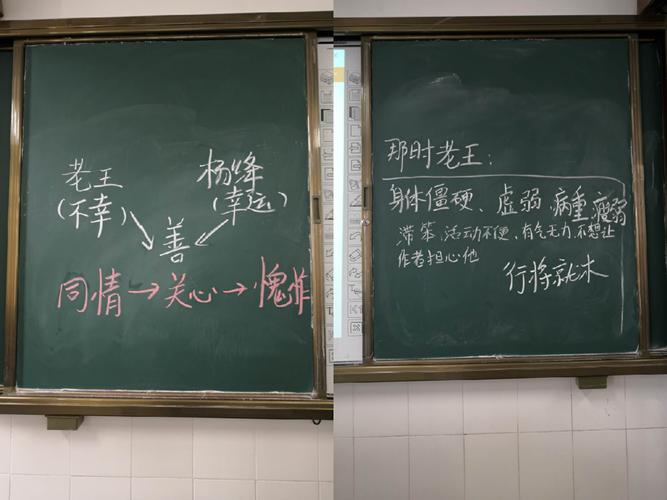 老王 杨绛
(不幸) (幸运)
善
同情→关心→愧怍
那时老王：
身体僵硬、虚弱、病重、瘦弱
滞笨、活动不便、有气无力、不想让
作者担心他
行将就木